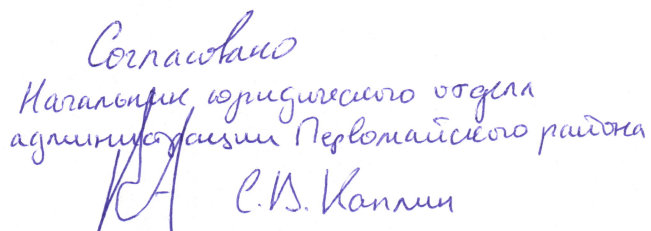 Согласовано
Начальник юридического отдела
администрации Первомайского района
С.В. Каплин